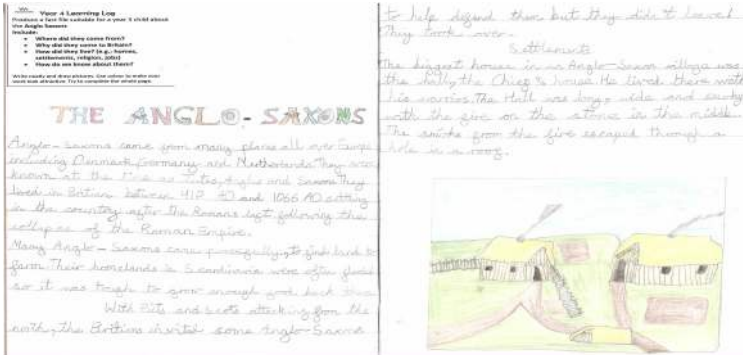 Year 4 Learning Log
Produce a fact file suitable for a year 3 child about
the Anglo Saxons
Include:
Where did they come from?
Why did they come to Britain?
How did they live? (e.g.: homes,
settlements, religion, jobs)
How do we know about them?
Write neatly and draw pictures. Use colour to make your
work look attractive. Try to complete the whole page.
THE ANGLO-SAXONS
Anglo-Saxons came from many places all over Europe
including Denmark, Germany and Netherlands. They were
known at the time as Jutes, Angles and Saxons They
lived in Britian between 410 AD and 1066 AD setting
in the country after the Romans left following the
collapse of the Roman Empire.
Many Anglo-Saxons came peacefully, to find land to
farm. Their homelands in Scandinavia were often flooded
so it was tough to grow enough food back then
With Picts and Scots attacking from the
north, the Britians invited some Anglo-Saxons
to help defend them but they didn't leave!
They took over.
Settlements
The biggest house in an Anglo-Saxon village was
the hall, the Chief's house. He lived there with
his warriors. The Hall was long, wide and smoky
with the fire on the stones in the middle.
The smoke from the fire escaped through a
hole in a roof.